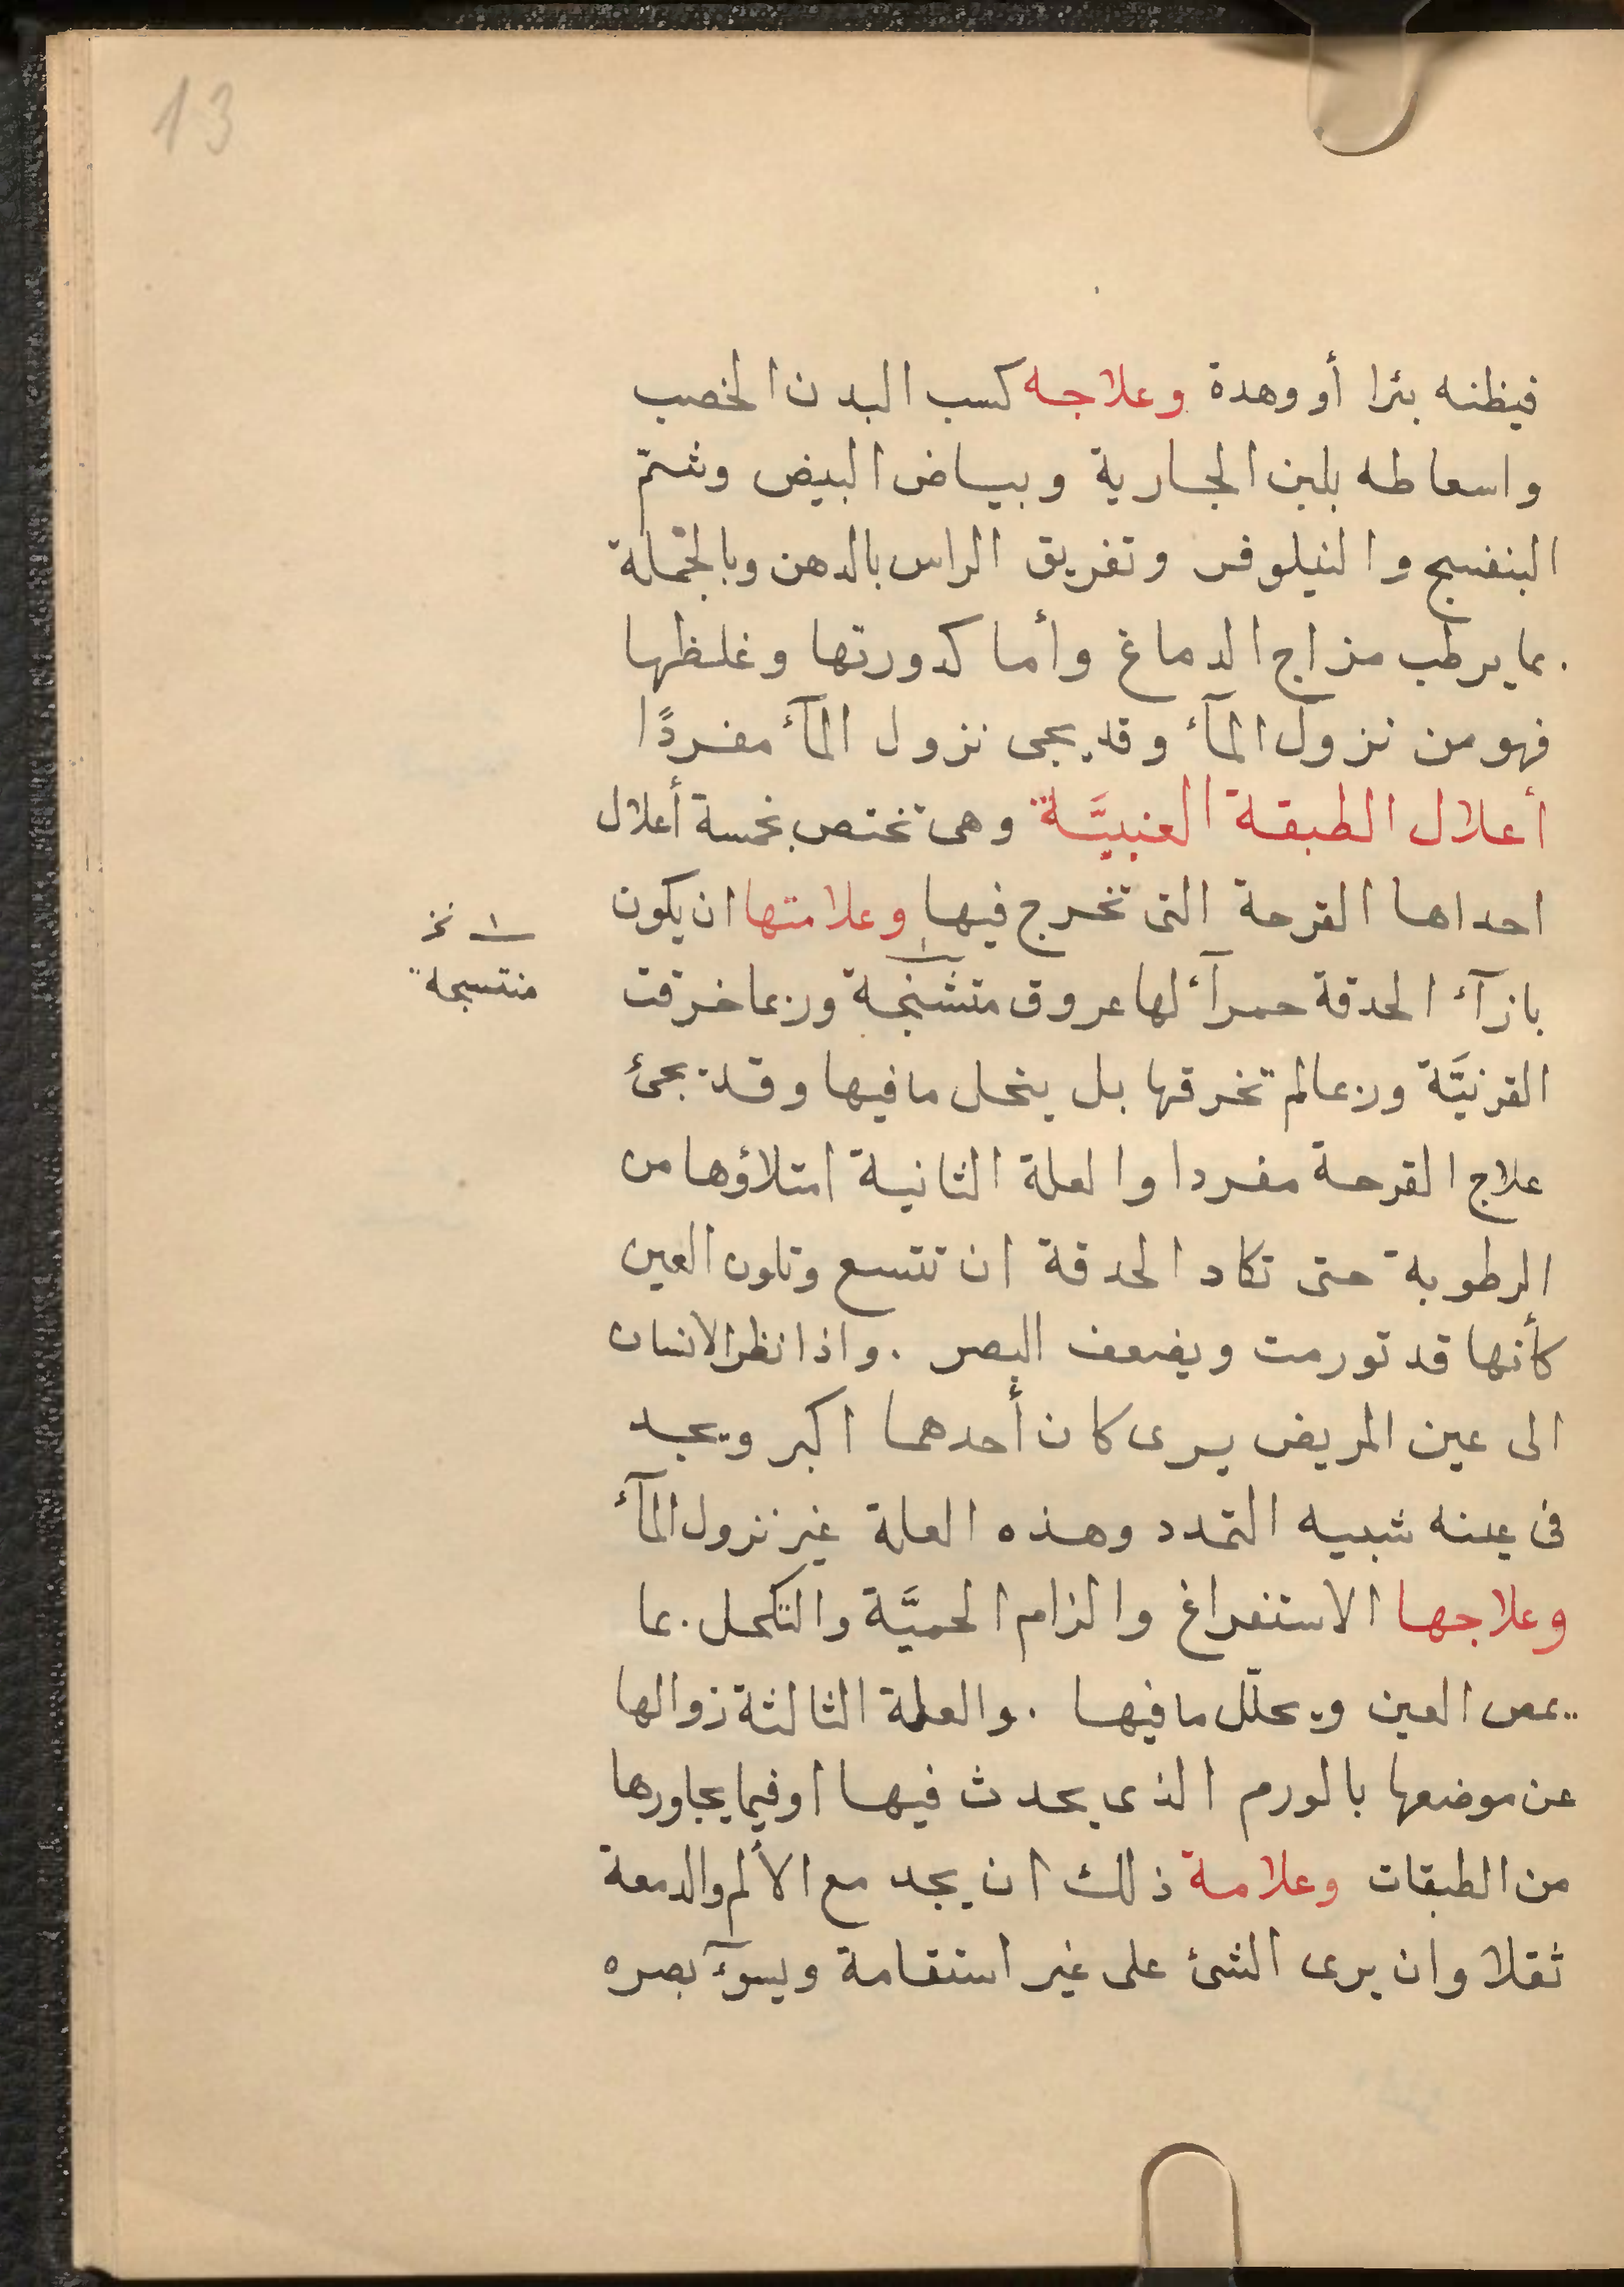 13
فيظنه بئرا أو وهدة وعلاجه كسب البدن الخصب
واسعاطه بلبن الجارية وبياض البيض وشمّ
البنفسج والنيلوفر وتغريق الراس بالدهن وبالجملة
بما يرطب مزاج الدماغ وأما كدورتها وغلظها
فهو من نزول المآء وقد يجى نزول المآء مفردًا
أعلال الطبقة العنبيَّة وهى تختص بخمسة أعلال
احداها القرحة التى تخرج فيها وعلامتها ان يكون
بازآء الحدقة حمرآء لها عروق متشنّجة وربما خرقت
١ نخ
منتسجة
القرنيَّة وربما لم تخرقها بل ينحل ما فيها وقد يجئ
علاج القرحة مفردا والعلة الثانية امتلاؤها من
الرطوبة حتى تكاد الحدقة ان تتسع وتلون العين
كأنها قد تورمت ويضعف البصر . واذا نظر الانسان
الى عين المريض يرى كان أحدهما اكبر ويجد
فى عينه شبيه التمدد وهذه العلة غير نزول المآء
وعلاجها الاستفراغ والزام الحميَّة والتكحل بما
يمص العين ويحلّل ما فيها . والعلة الثالثة زوالها
عن موضعها بالورم الذى يحدث فيها او فيما يجاورها
من الطبقات وعلامة ذلك ان يجد مع الألم والدمعة
ثقلا وان يرى الشئ على غير استقامة ويسوٓء بصره